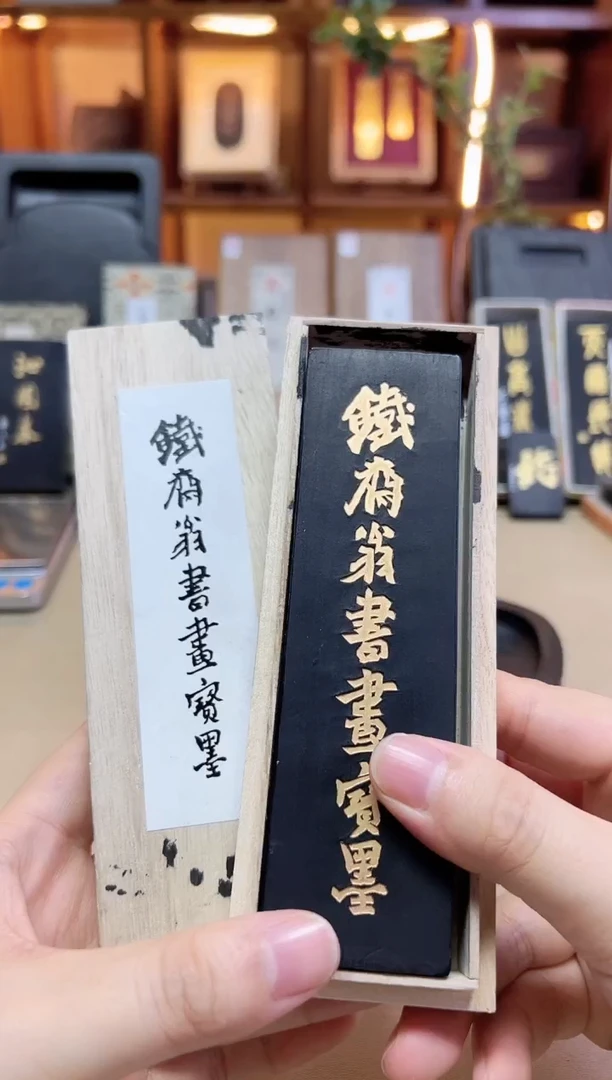 鐵齋翁書畫寶墨
鐵齋翁書畫寶墨